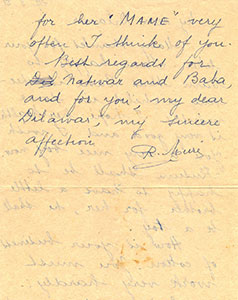 for her "MAME" very
often I think of you.
Best regards for
Natwar and Baba,
and for you, my dear
Dilawar, my sincere
affection
R.